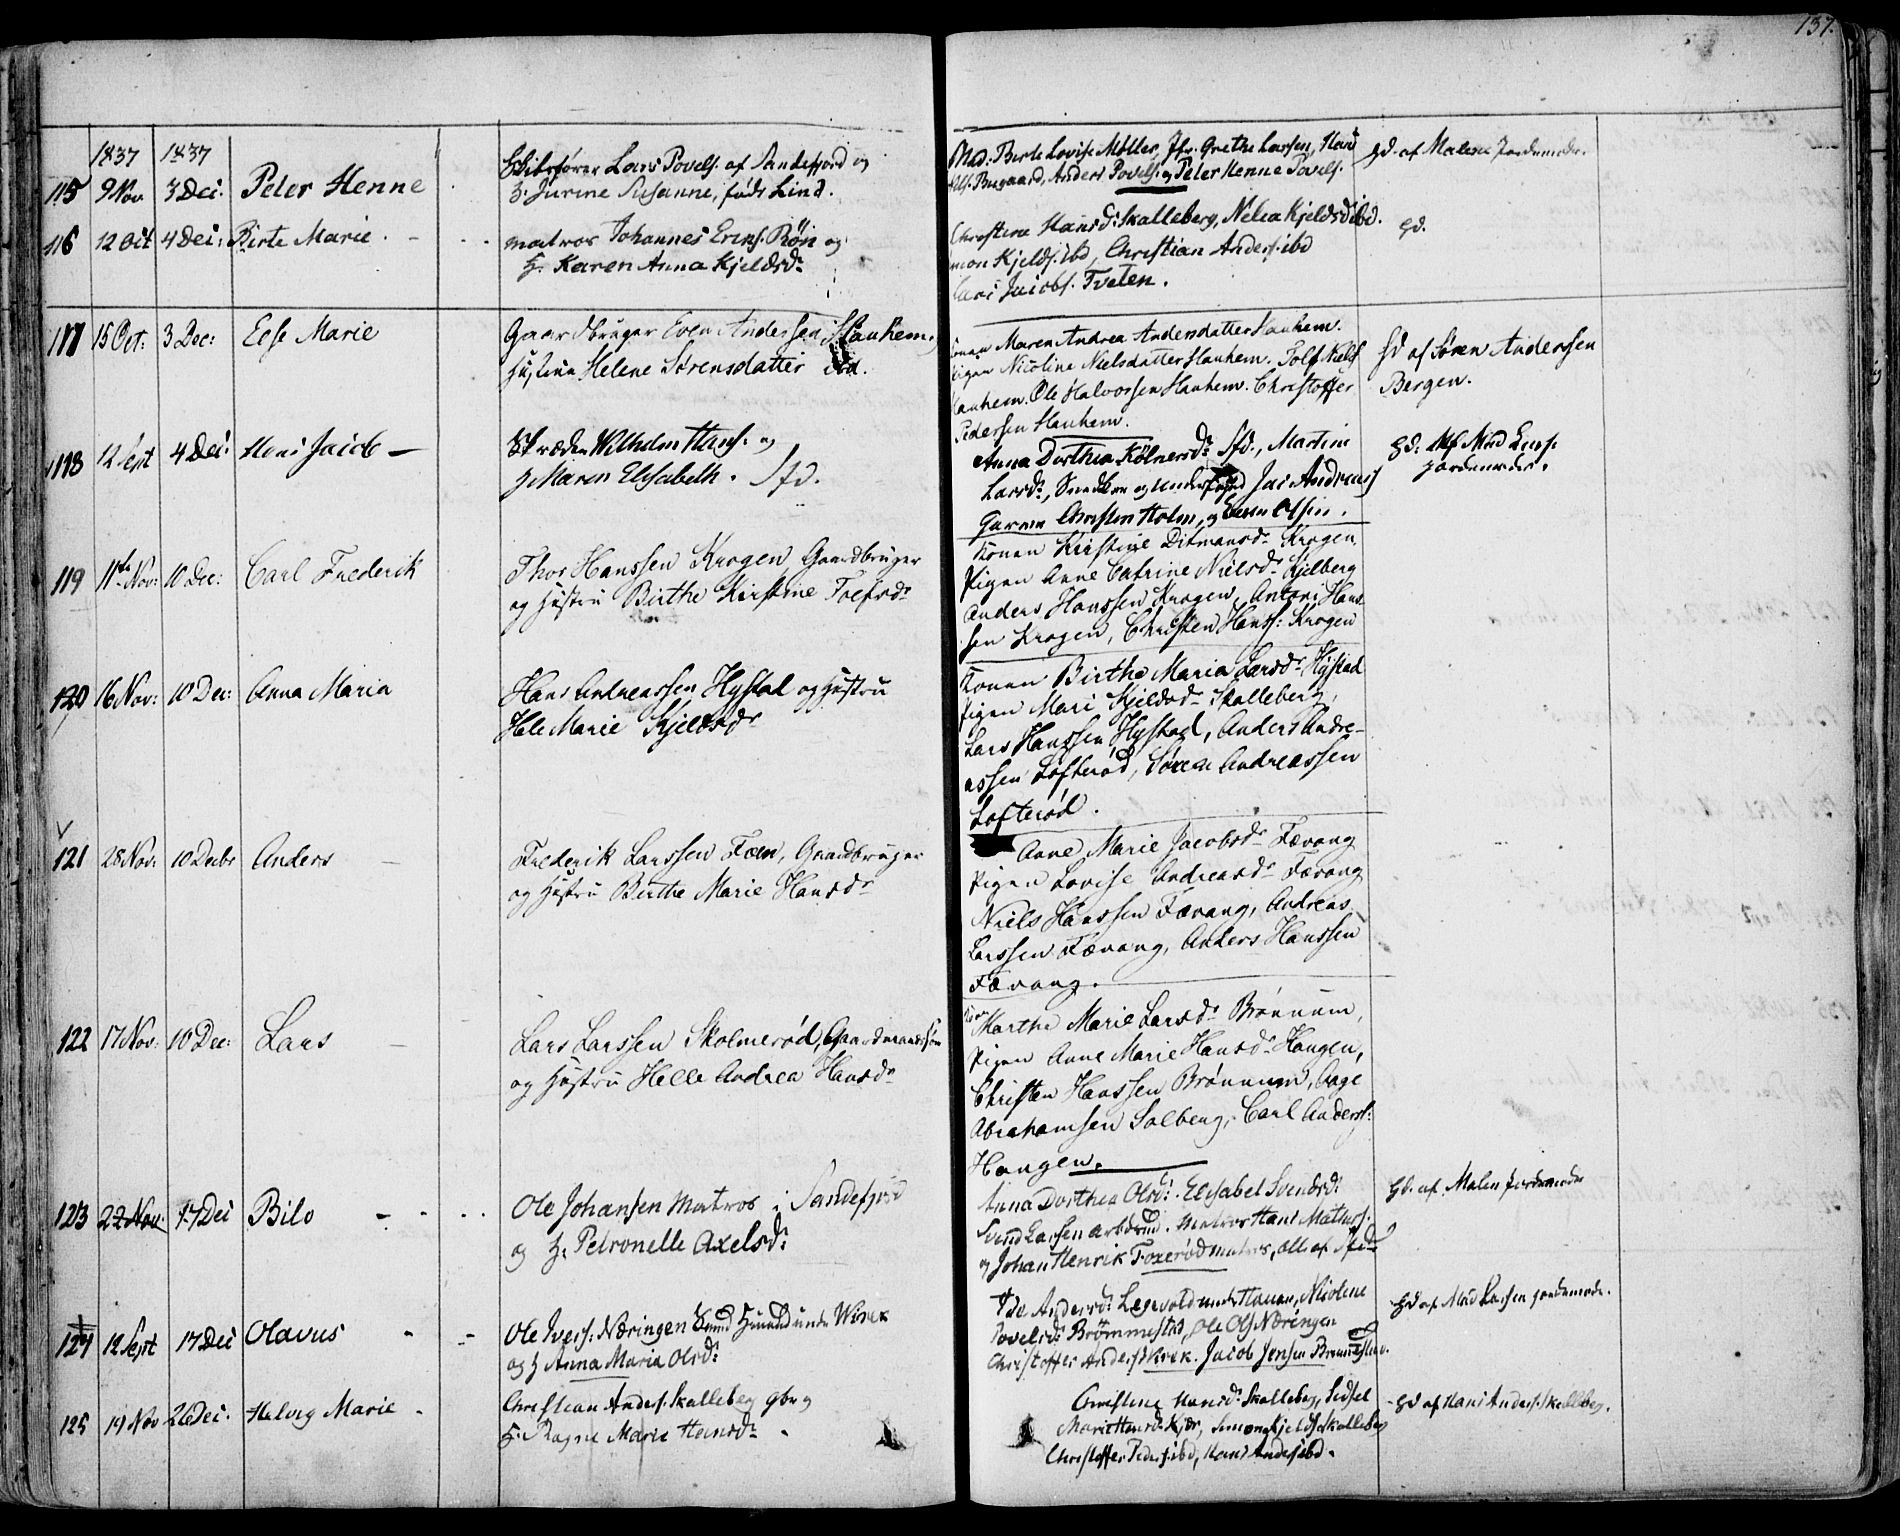 137.
1837 1837
115 9 Nov 3 Dec: Peter Henne
Skibsfører Lars Povels. af Sandefjord og
H. Jurine Susanne, født Lind.
Mad: Berte Lovise Møller, Jfr. Grethe Larsen, Hans
Bugaard, Anders Povels. og Peter Henne Povels.
gd. af Malene Jordemoder.
116 12 Oct 4 Dec: Berte Marie
matros Johannes Erens. Røn og
H. Karen Anna Kjeldsdr
Christine Hansd: Skalleberg, Nelea Kjeldsd ibd.
mon Kjelds. ibd, Christian Anders. ibd
Jacobs. Tveten.
gd.
117 15 Oct: 3 Dec: Else Marie
Gaardbruger Even Andersen Hauhem,
Hustrue Helene Sørensdatter ibd.
Konen Maren Andrea Andersdatter Hauhem.
Pigen Nicoline Nielsdatter Hauhem. Tolf Niels
Hauhem. Ole Halvorsen Hauhem. Christoffer
Pedersen Hauhem.
hd af Søren Anderssen
Bergen.
118 12 Sept 4 Dec: Hans Jacob —
Skræder Wilhelm Hans. og
H Maren Elisabeth. Sfd.
Anna Dorthea Kølnersdr Sfd., Martine
Larsdr, Jac Andreas
Garver Christen Holm, og Even Olsen.
gd: Mad Lars:
Jordemoder.
119 11te Nov: 10 Dec: Carl Frederik
Thor Hanssen Krogen, Gaardbruger
og Hustru Birthe Kirstine Tolfsdr
Konen Kirstine Ditmansdr Krogen.
Pigen Anne Catrine Nielsdr Kjelberg
Anders Hanssen Krogen, Anton Hans
sen Krogen, Christen Hanss: Krogen
120 16 Nov: 10 Dec: Anna Maria
Hans Andreassen Hystad og Hustru
Hele Marie Kjeldsdr
Konen Birthe Maria Larsdr Hystad
Pigen Mari Kjeldsdr Skalleberg,
Lars Hanssen Hystad, Anders Andre-
assen Lofterød, Søren Andreassen
Lofterød.
121 28 Nov: 10 Decbr Anders
Frederik Larssen Foen, Gaardbruger
og Hustru Birthe Marie Hansdr
Anne Marie Jacobsdr Fævang
Pigen Lovise Andreasdr Fævang
Niels Hanssen Fævang, Andreas
Larssen Fævang, Anders Hanssen
Fævang.
122 17 Nov: 10 Dec: Lars
Lars Larssen Skolmerød, Gaardmandssøn
og Hustru Helle Andrea Hansdr
Kon Marthe Marie Larsdr Brønnum,
Pigen Anne Marie Hansdr Haugen,
Christen Hanssen Brønnum, Aage
Abrahamsen Solberg, Carl Anderss:
Haugen.
123 22 Nov. 17 Dec Bilo
Ole Johansen Matros i Sandefjord
og H. Petronelle Axelsd:
Anna Dorthea Olsd:. Elisabet Svendsd:
Svend Larsen Arbdsmd. Matros Hans Mathiss.
og Johan Henrik Foxerød matros, alle af Sfd
gd. af Malen Jordemoder
124 12 Sept 17 Dec Olavus
Ole Ivers. Næringen
og H Anna Maria Olsd:
Andersd: Nicolene
Povelsd: Brømmestad, Ole Ols Næringen
Christoffer Anders Virek. Jacob Jensen
gd af Mad Larsen Jordemoder.
125 19 Nov 26 Dec. Helvig Marie
Christian Anders. Skalleberg gbr og
H. Ragne Marie Hansd:
Christine Hansd: Skalleberg, Sidsel
Marie Hansd: Kjær, Simon Kjelds Skalleberg
Christoffer Peders. ibd, Hans Anders ibd.
gd af Hans Anders. Skalleberg.